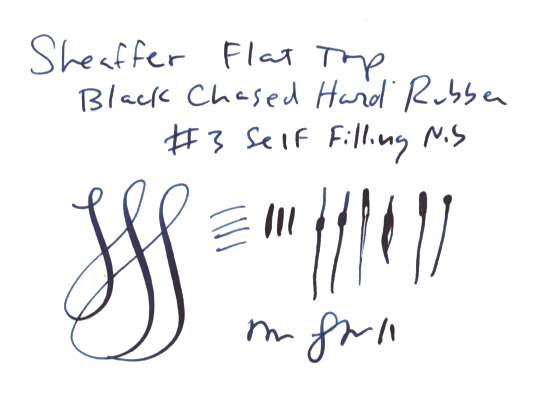 Sheaffer Flat Top
Black Chased Hard Rubber
#3 Self Filling Nib